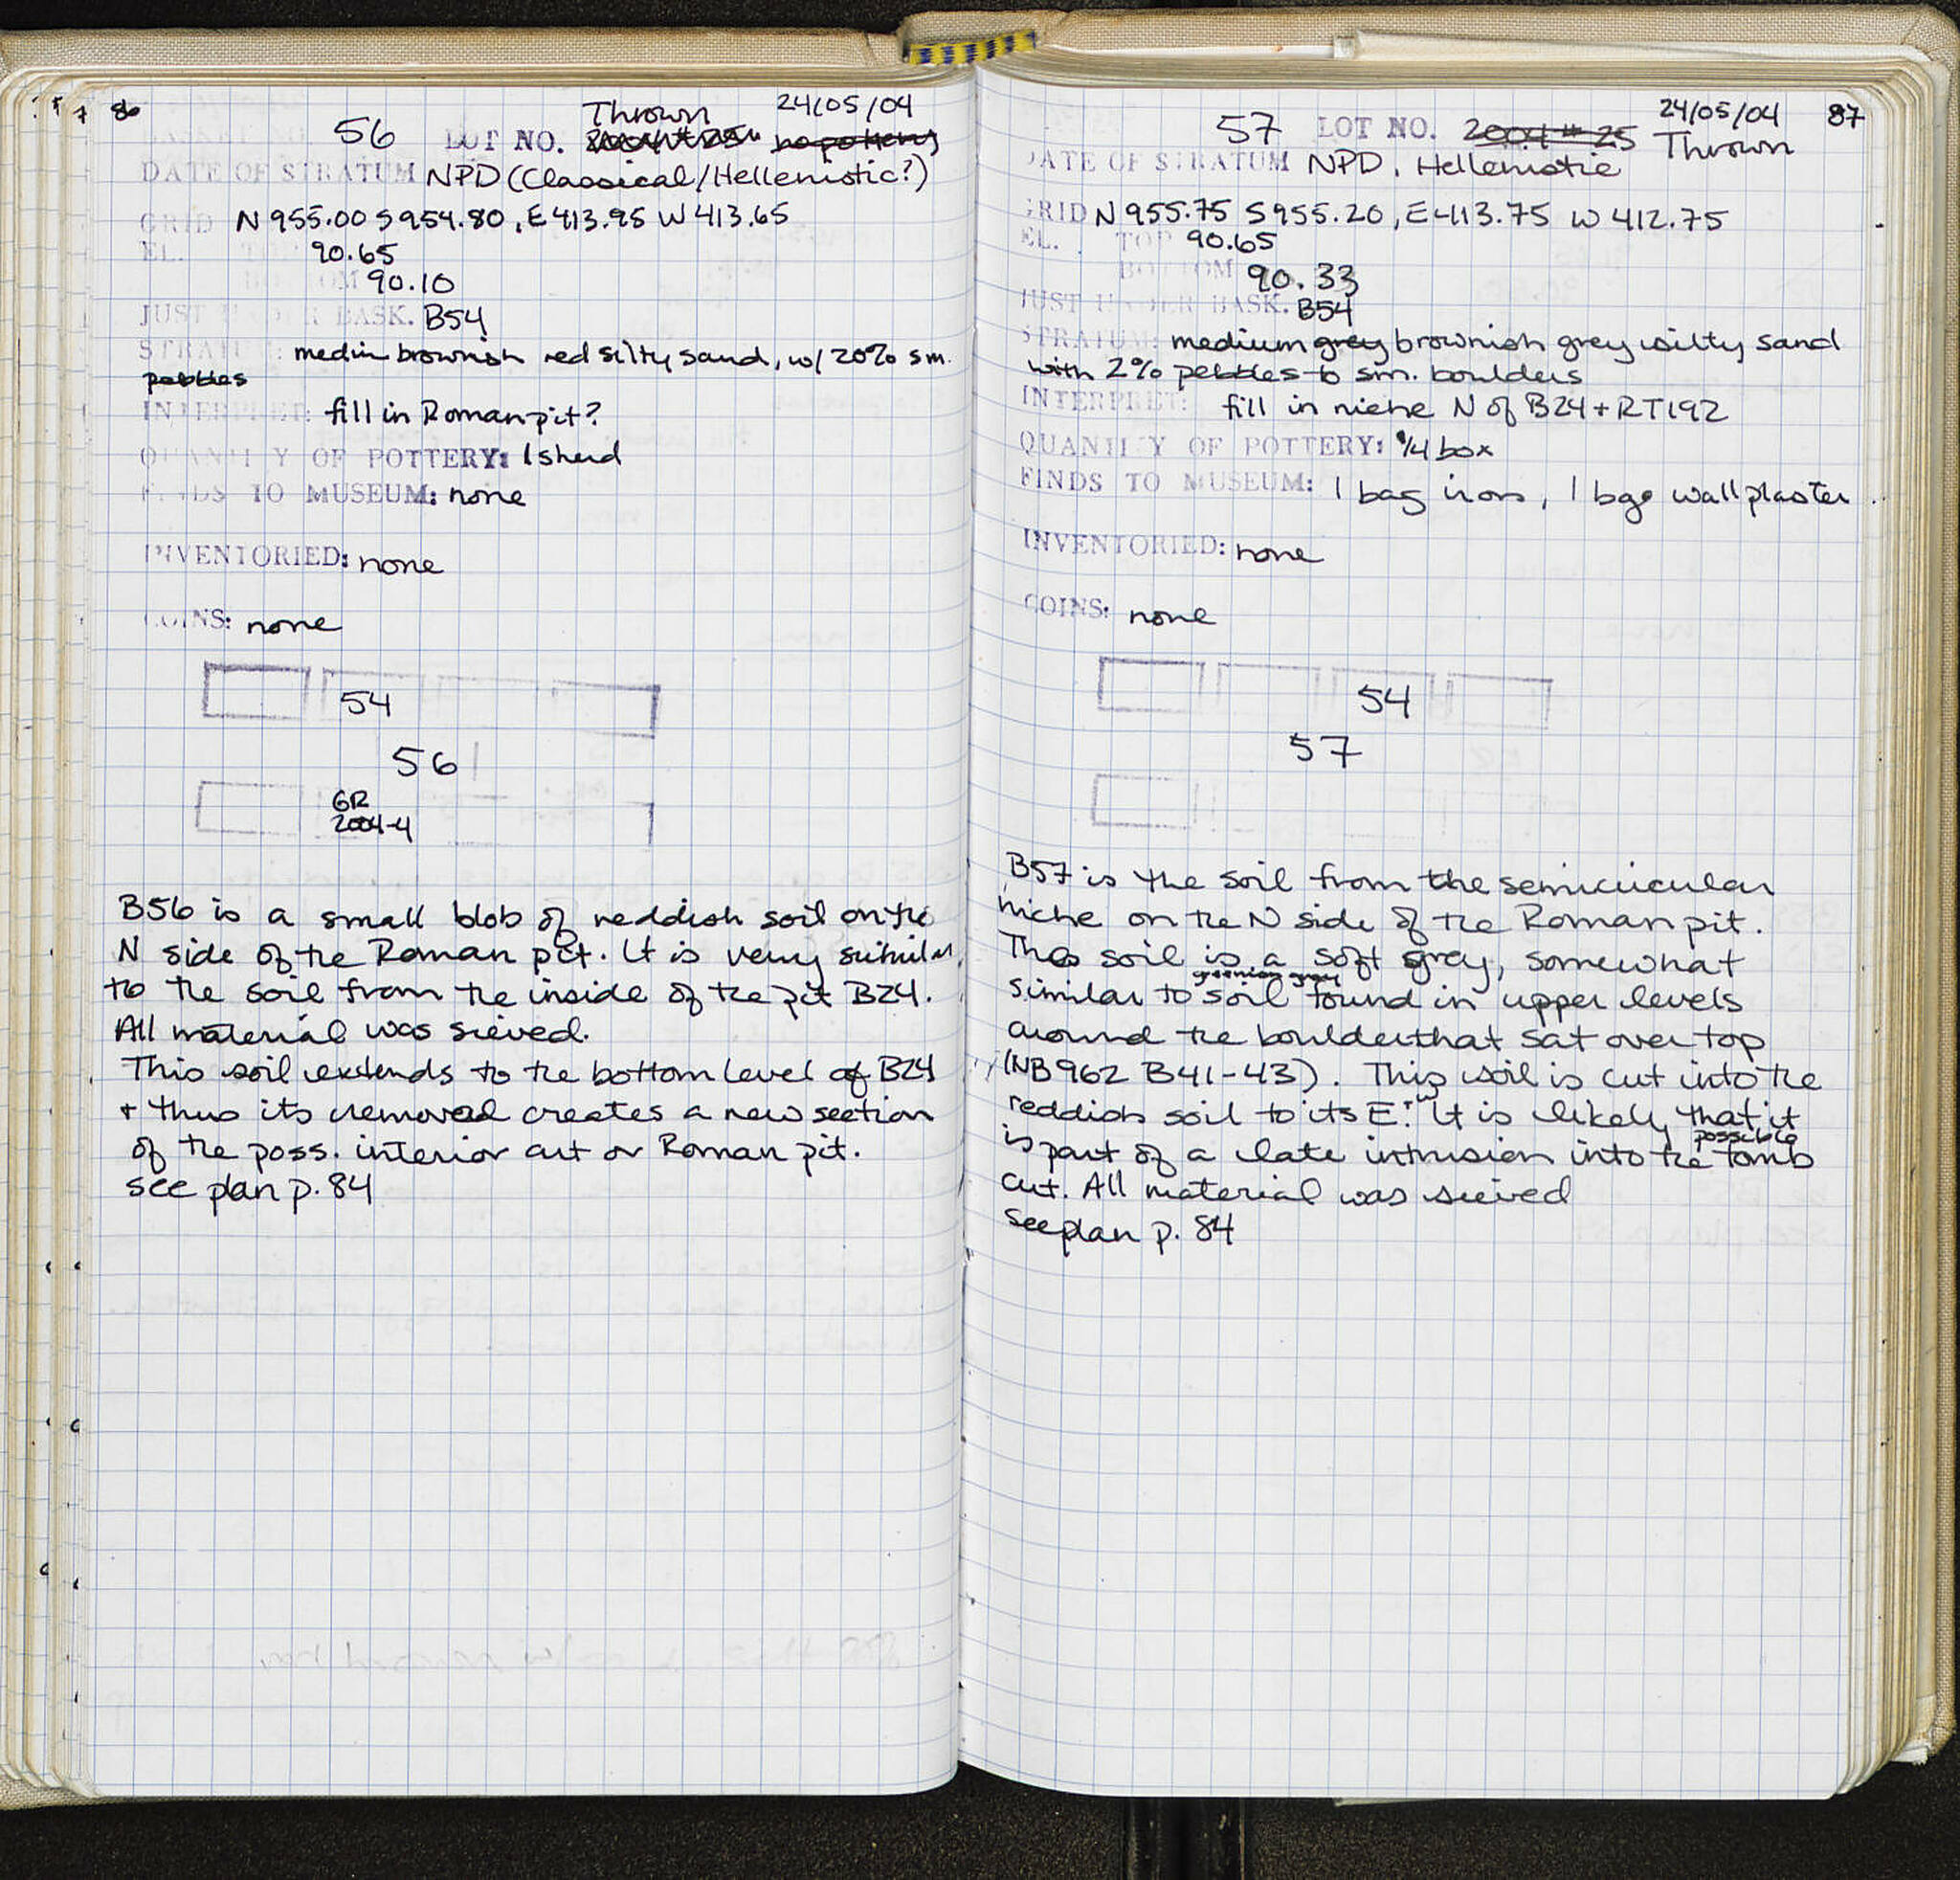 86
Thrown 24/05/04
56 LOT NO. no pottery
DATE OF STRATUM NPD (Classical/Hellenistic?)
GRID N 955.00 S 954.80, E 413.95 W 413.65
EL. TOP 90.65
BOTTOM 90.10
JUST UNDER BASK. B54
STRATUM: medium brownish red silty sand, w/ 20% sm.
pebbles
INTERPRET: fill in Roman pit?
QUANTITY OF POTTERY: 1 sherd
FINDS TO MUSEUM: none
INVENTORIED: none
COINS: none
54
56
GR
2004-4
B56 is a small blob of reddish soil on the
N side of the Roman pit. It is very similar
to the soil from the inside of the pit B24.
All material was sieved.
This soil extends to the bottom level of B24
+ thus its removal creates a new section
of the poss. interior cut or Roman pit.
see plan p. 84
24/05/04 87
57 LOT NO. 2004 # 25 Thrown
DATE OF STRATUM NPD, Hellenistic
GRID N 955.75 S 955.20, E 413.75 W 412.75
EL. TOP 90.65
BOTTOM 90.33
JUST UNDER BASK. B54
STRATUM: medium grey brownish grey silty sand
with 2% pebbles to sm. boulders
INTERPRET: fill in niche N of B24 + RT192
QUANTITY OF POTTERY: 1/4 box
FINDS TO MUSEUM: 1 bag iron, 1 bgo wall plaster
INVENTORIED: none
COINS: none
54
57
B57 is the soil from the semicircular
niche on the N side of the Roman pit.
This soil is a soft grey, somewhat
greenish grey
similar to soil found in upper levels
around the boulder that sat over top
(NB 962 B41-43). This soil is cut into the
reddish soil to its E. It is likely that it
possible
is part of a late intrusion into the tomb
cut. All material was sieved
see plan p. 84